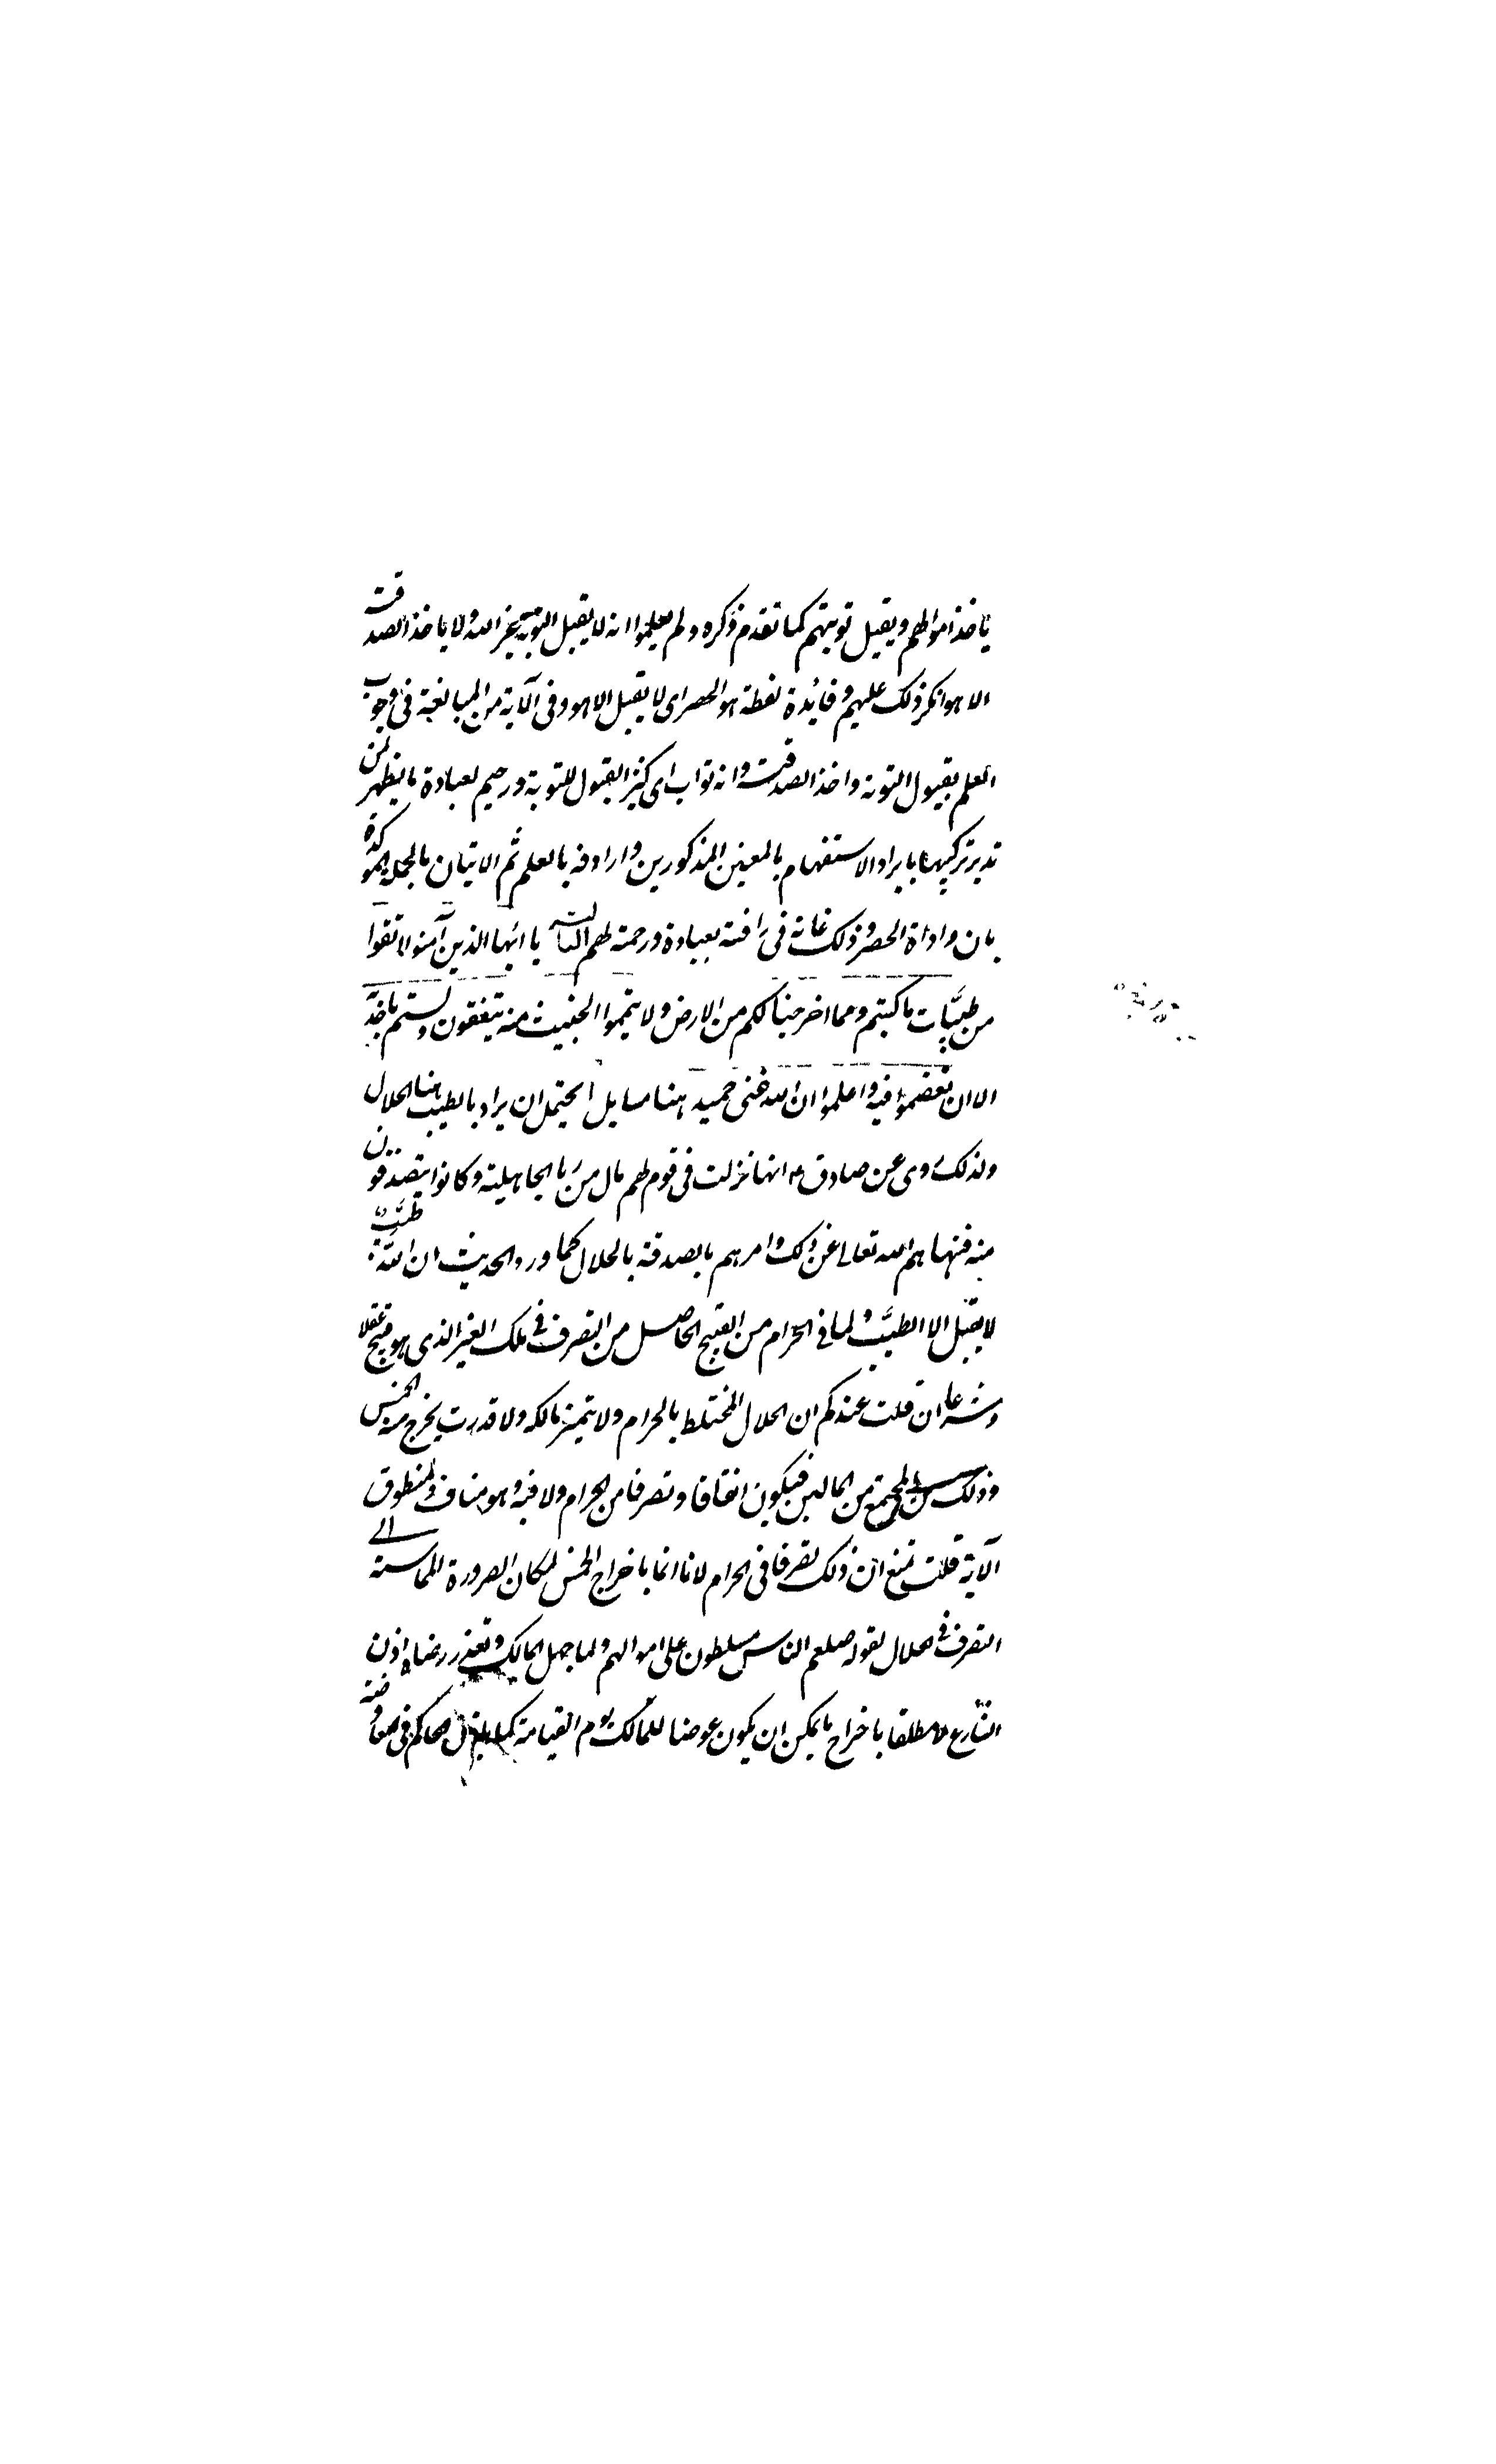 ياخذ اموالهم ويقبل توبتهم كما تقدم ذكره ولم يعلموا انه لا يقبل التوبة غير الله ولا ياخذ الصدقت
الا هو انكر ذلك عليهم وفائدة لفظة هو الحصر اى لا يقبل الا هو وفى الآية من المبالغة فى وجوب
العلم بقبول التوبة واخذ الصدقت وانه تواب اى كثير القبول للتوبة ورحيم لعبادة ما يظهر لمن
تدبر تركيبها بايراد الاستفهام بالمعنين المذكورين وارادفه بالعلم ثم الاتيان بالجملة الموكدة
بان واداة الحصر وذلك غاية فى رافته بعبادة ورحمته لهم الثالثة يا ايها الذين آمنوا انفقوا
من طيبات ما كسبتم ومما اخرجنا لكم من الارض ولا تيمموا الخبيث منه تنفقون ولستم باخذيه
الا ان تغمضوا فيه واعلموا ان الله غنى حميد هنا مسايل ا يحتمل ان يراد بالطيب هنا الحلال
ولذلك روى عن صادق ع انها نزلت فى قوم لهم مال من ربا الجاهلية وكانوا يتصدقون
منه فنهاهم الله تعالى عن ذلك وامرهم بالصدقة بالحلال كما ورد الحديث ان الله طيب
لا يقبل الا الطيب ولما فى الحرام من القبح الحاصل من التصرف فى ملك الغير الذى هو قبيح عقلا
وشرعا ان قلت عندكم ان الحلال المختلط بالحرام ولا يتميز مالكه ولا قدره يخرج منه الخمس
وذلك من المجتمع من المالين فيكون انفاقا وتصرفا من الحرام ولا فيه وهو مناف لمنطوق
الآية قلت نمنع ان ذلك تصرفا فى الحرام لانا انما باخراج الخمس لمكان الضرورة الماسة الى
التصرف فى الحلال لقوله صلعم الناس مسلطون على اموالهم ولما جهل المالك وتعذر رضاه اذن
الشارع ع مطلقا باخراج ما يمكن ان يكون عوضا للمالك يوم القيامة كما ياذن الحاكم فى معاوضة